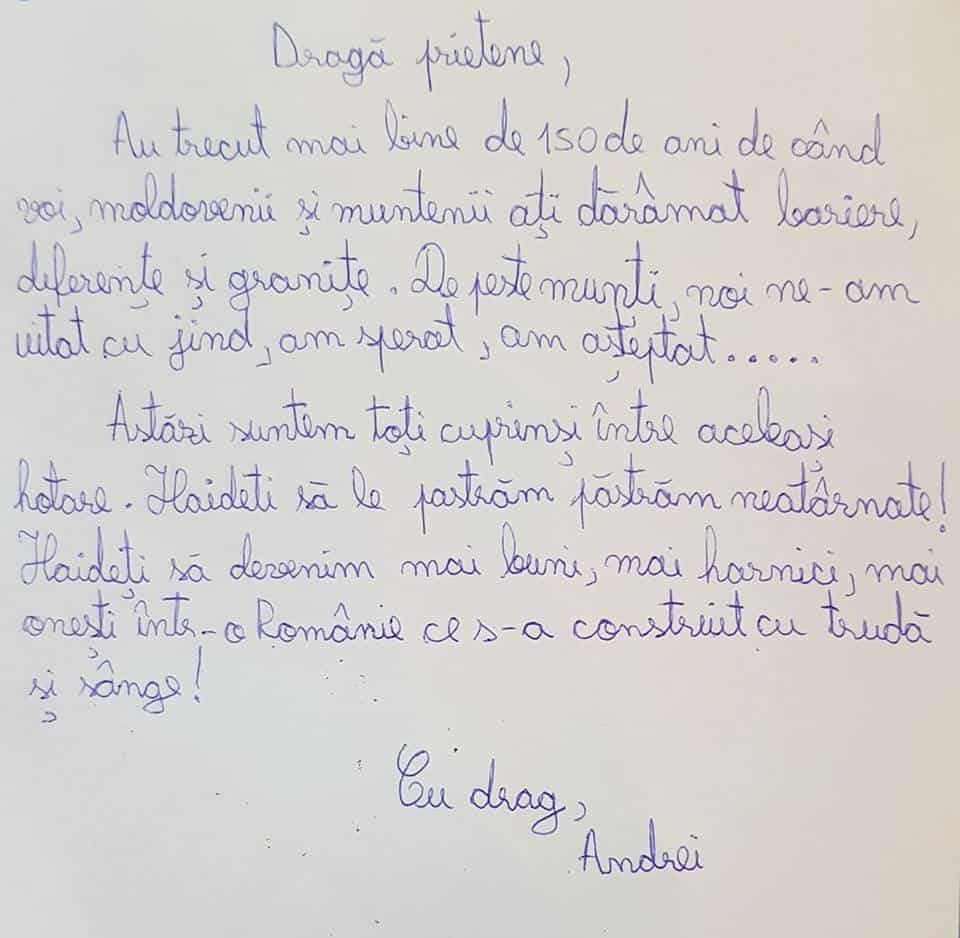 Dragă prietene,
Au trecut mai bine de 150 de ani de când
voi, moldovenii și muntenii ați dărâmat bariere,
diferențe și granițe. De peste munți, noi ne-am
uitat cu jind, am sperat, am așteptat.....
Astăzi suntem toți cuprinși între aceleași
hotare. Haideti să le pastrăm păstrăm neatârnate!
Haideți să devenim mai buni, mai harnici, mai
onești într-o Românie ce s-a construit cu trudă
și sânge!
Cu drag,
Andrei